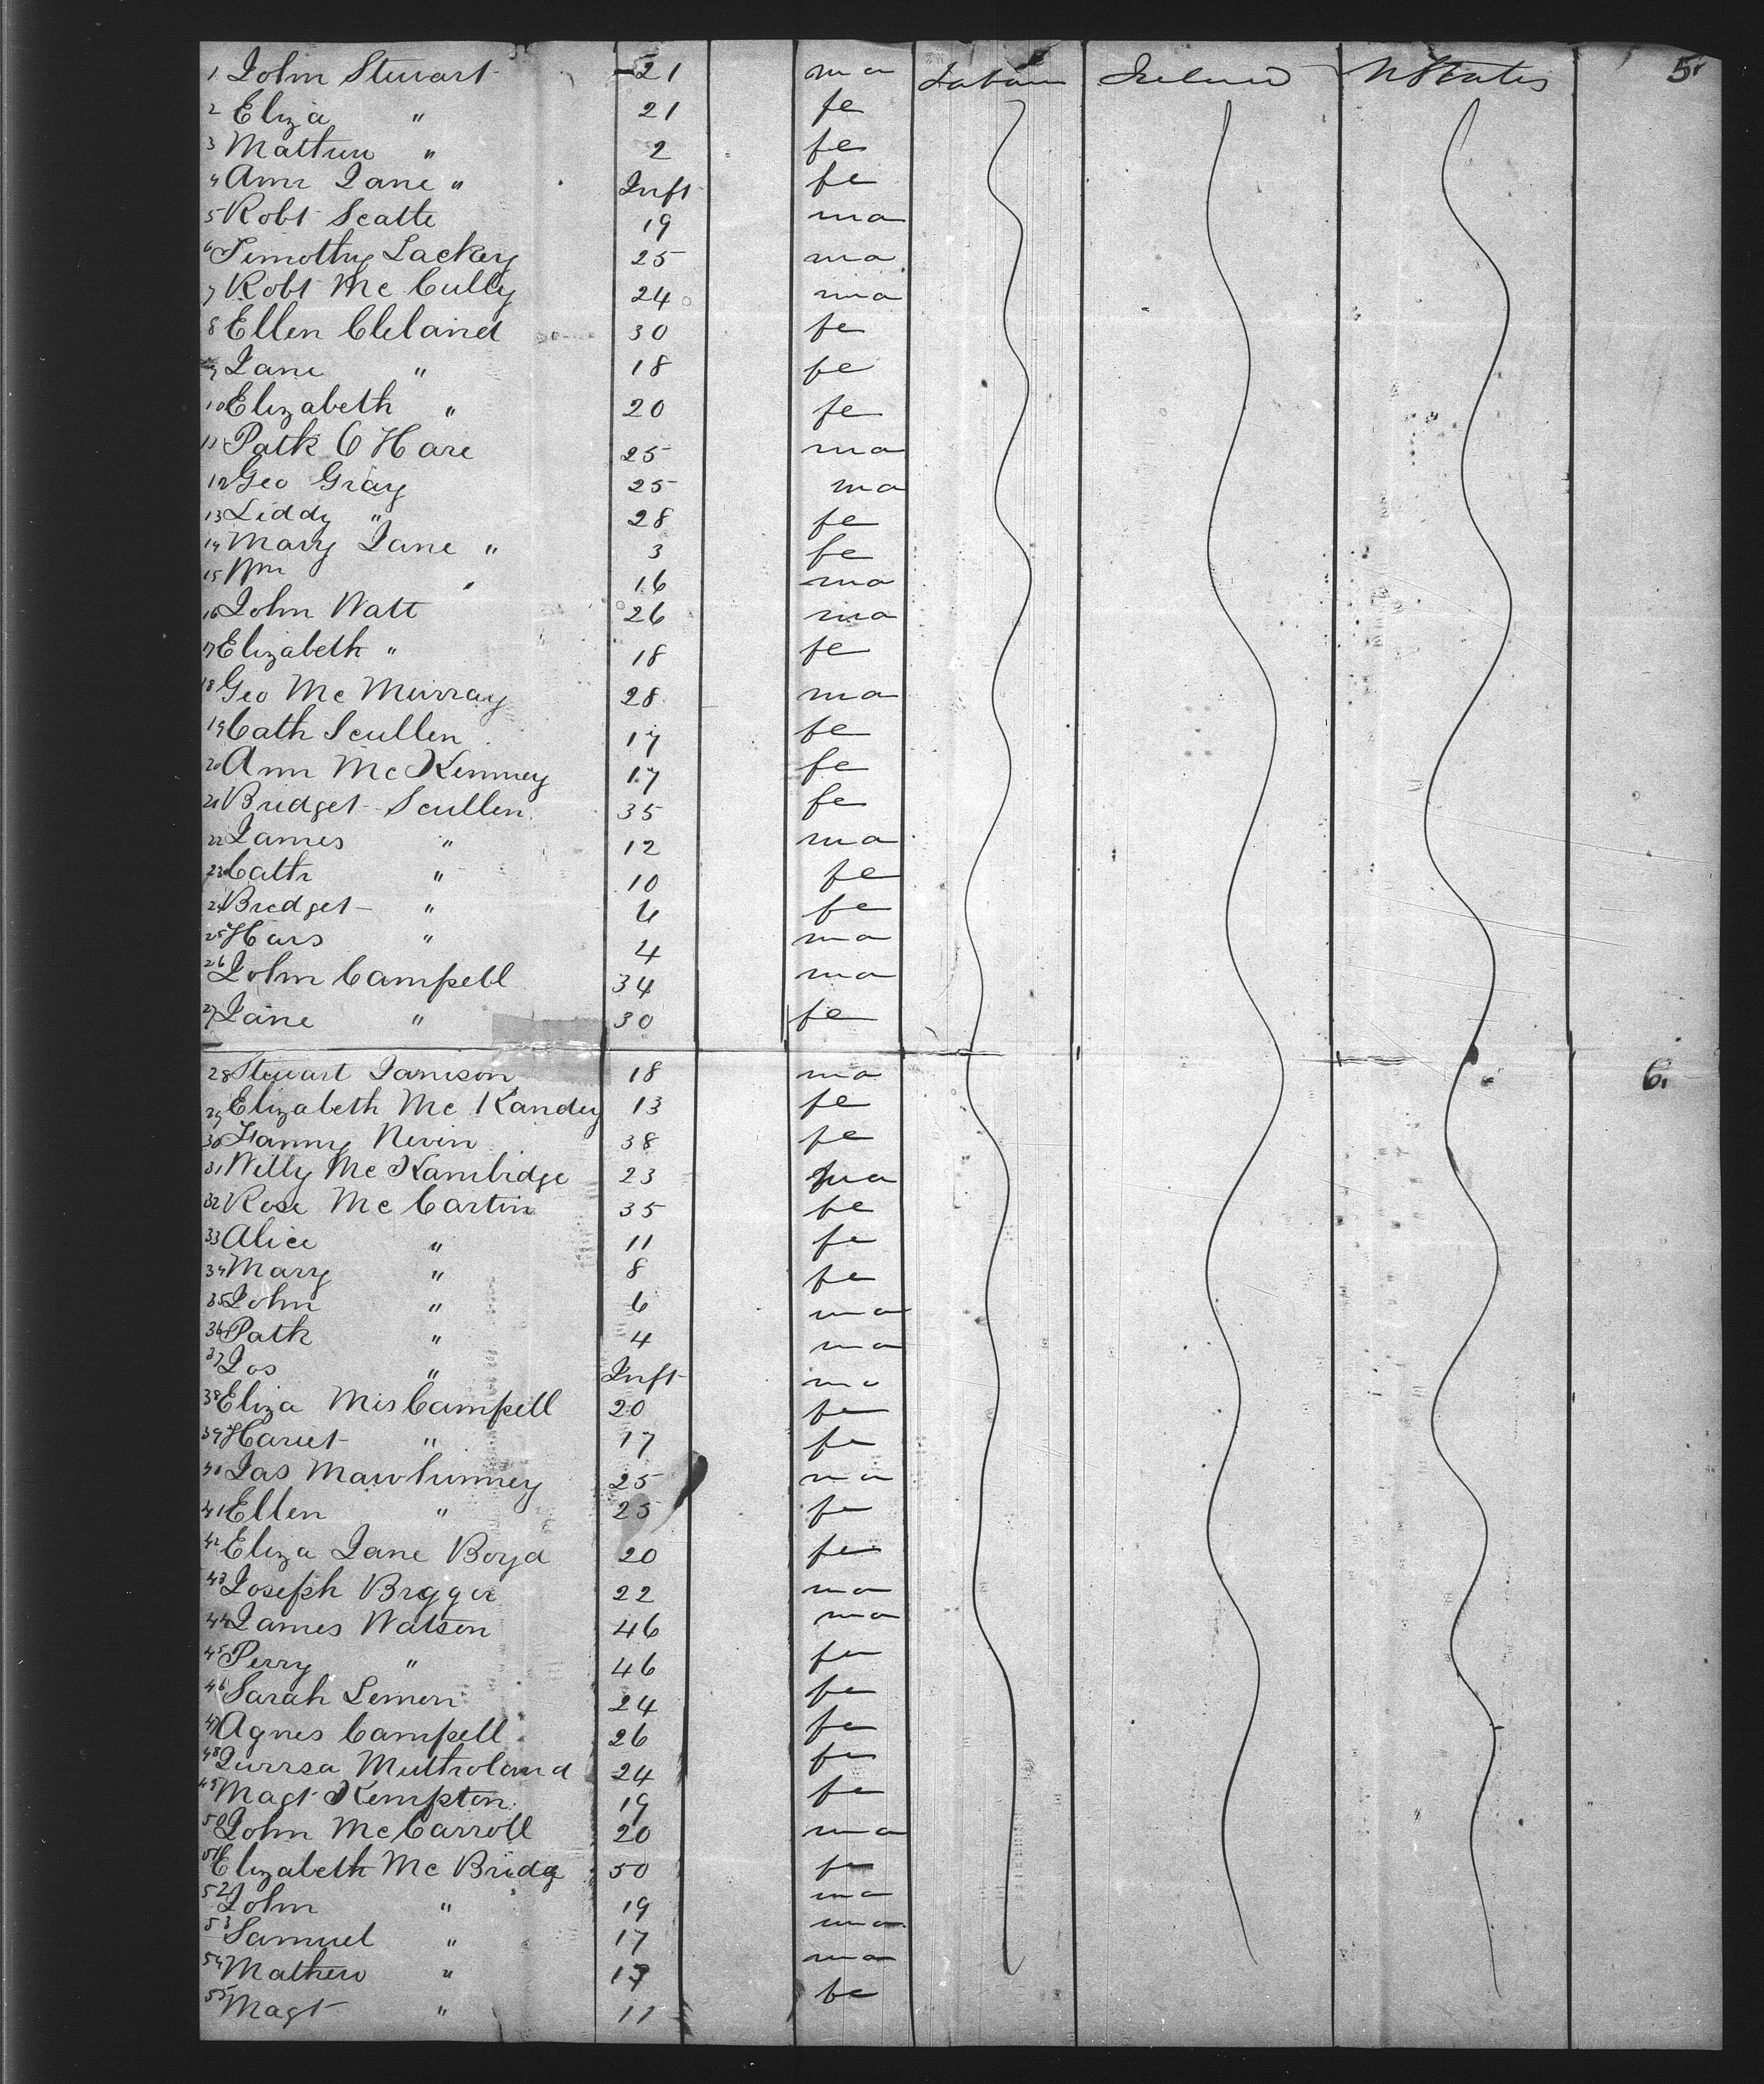 1 John Stewart 21 ma Labour Ireland U States 5
2 Eliza " 21 fe
3 Mathew " 2 fe
4 Ann Jane " Inft fe
5 Robt Scatte 19 ma
6 Timothy Lackey 25 ma
7 Robt Mc Cully 24 ma
8 Ellen Cleland 30 fe
9 Jane " 18 fe
10 Elizabeth " 20 fe
11 Patk O Hare 25 ma
12 Geo Gray 25 ma
13 Liddy " 28 fe
14 Mary Jane " 3 fe
15 Wm " 16 ma
16 John Watt 26 ma
17 Elizabeth " 18 fe
18 Geo Mc Murray 28 ma
19 Cath Scullen 17 fe
20 Ann Mc Kenney 17 fe
21 Bridget Scullen 35 fe
22 James " 12 ma
23 Cath " 10 fe
24 Bridget " 6 fe
25 Hars " 4 ma
26 John Campell 34 ma
27 Jane " 30 fe
28 Stewart Jamison 18 ma 6
29 Elizabeth Mc Kandey 13 fe
30 Fanny Nevin 38 fe
31 Willy Mc Kambridge 23 ma
32 Rose Mc Cartin 35 fe
33 Alice " 11 fe
34 Mary " 8 fe
35 John " 6 ma
36 Patk " 4 ma
37 Jos " Inft ma
38 Eliza Mis Campell 20 fe
39 Hariet " 17 fe
40 Jas Mawhinney 25 ma
41 Ellen " 25 fe
42 Eliza Jane Boyd 20 fe
43 Joseph 22 ma
44 James Watson 46 ma
45 Perry " 46 fe
46 Sarah Lemon 24 fe
47 Agnes Campell 26 fe
48 Mulholand 24 fe
49 Magt Kempton 19 fe
50 John Mc Carroll 20 ma
51 Elizabeth Mc Bridg 50 fe
52 John " 19 ma
53 Samuel " 17 ma
54 Mathew " 17 ma
55 Magt " 11 fe